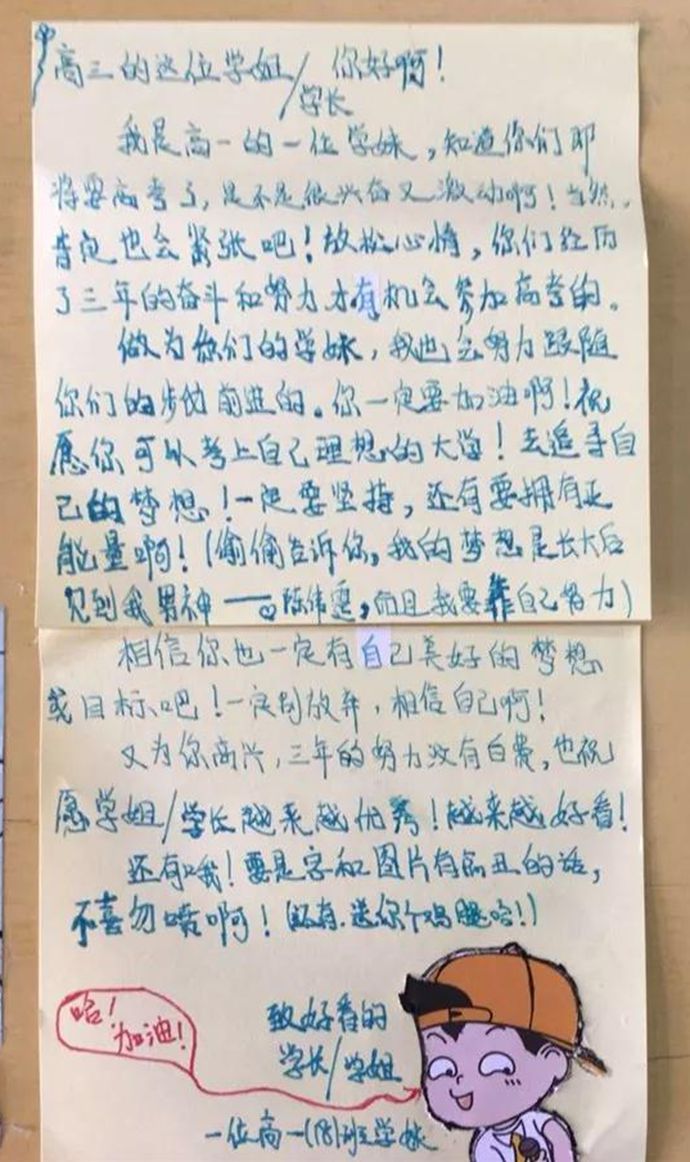 高三的这位学姐/学长 你好啊！
我是高一的一位学妹，知道你们即
将要高考了，是不是很兴奋又激动啊！当然，
肯定也会紧张吧！放松心情，你们经历
了三年的奋斗和努力才有机会参加高考的。
做为你们的学妹，我也会努力跟随
你们的步伐前进的。你一定要加油啊！祝
愿你可以考上自己理想的大学！去追寻自
己的梦想！一定要坚持，还有要拥有正
能量啊！（偷偷告诉你，我的梦想是长大后
见到我男神——陈伟霆，而且我要靠自己努力）
相信你也一定有自己美好的梦想
或目标吧！一定别放弃，相信自己啊！
又为你高兴，三年的努力没有白费，也祝
愿学姐/学长越来越优秀！越来越好看！
还有哦！要是字和图片有点丑的话，
不喜勿喷啊！（还有，送你个鸡腿哈！）
哈！
加油！
致好看的
学长/学姐
一位高一（18）班学妹